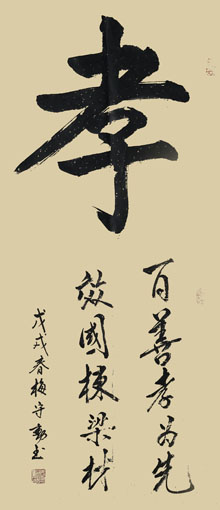 孝
百善孝为先
效國棟梁材
戊戌春梅守勤书